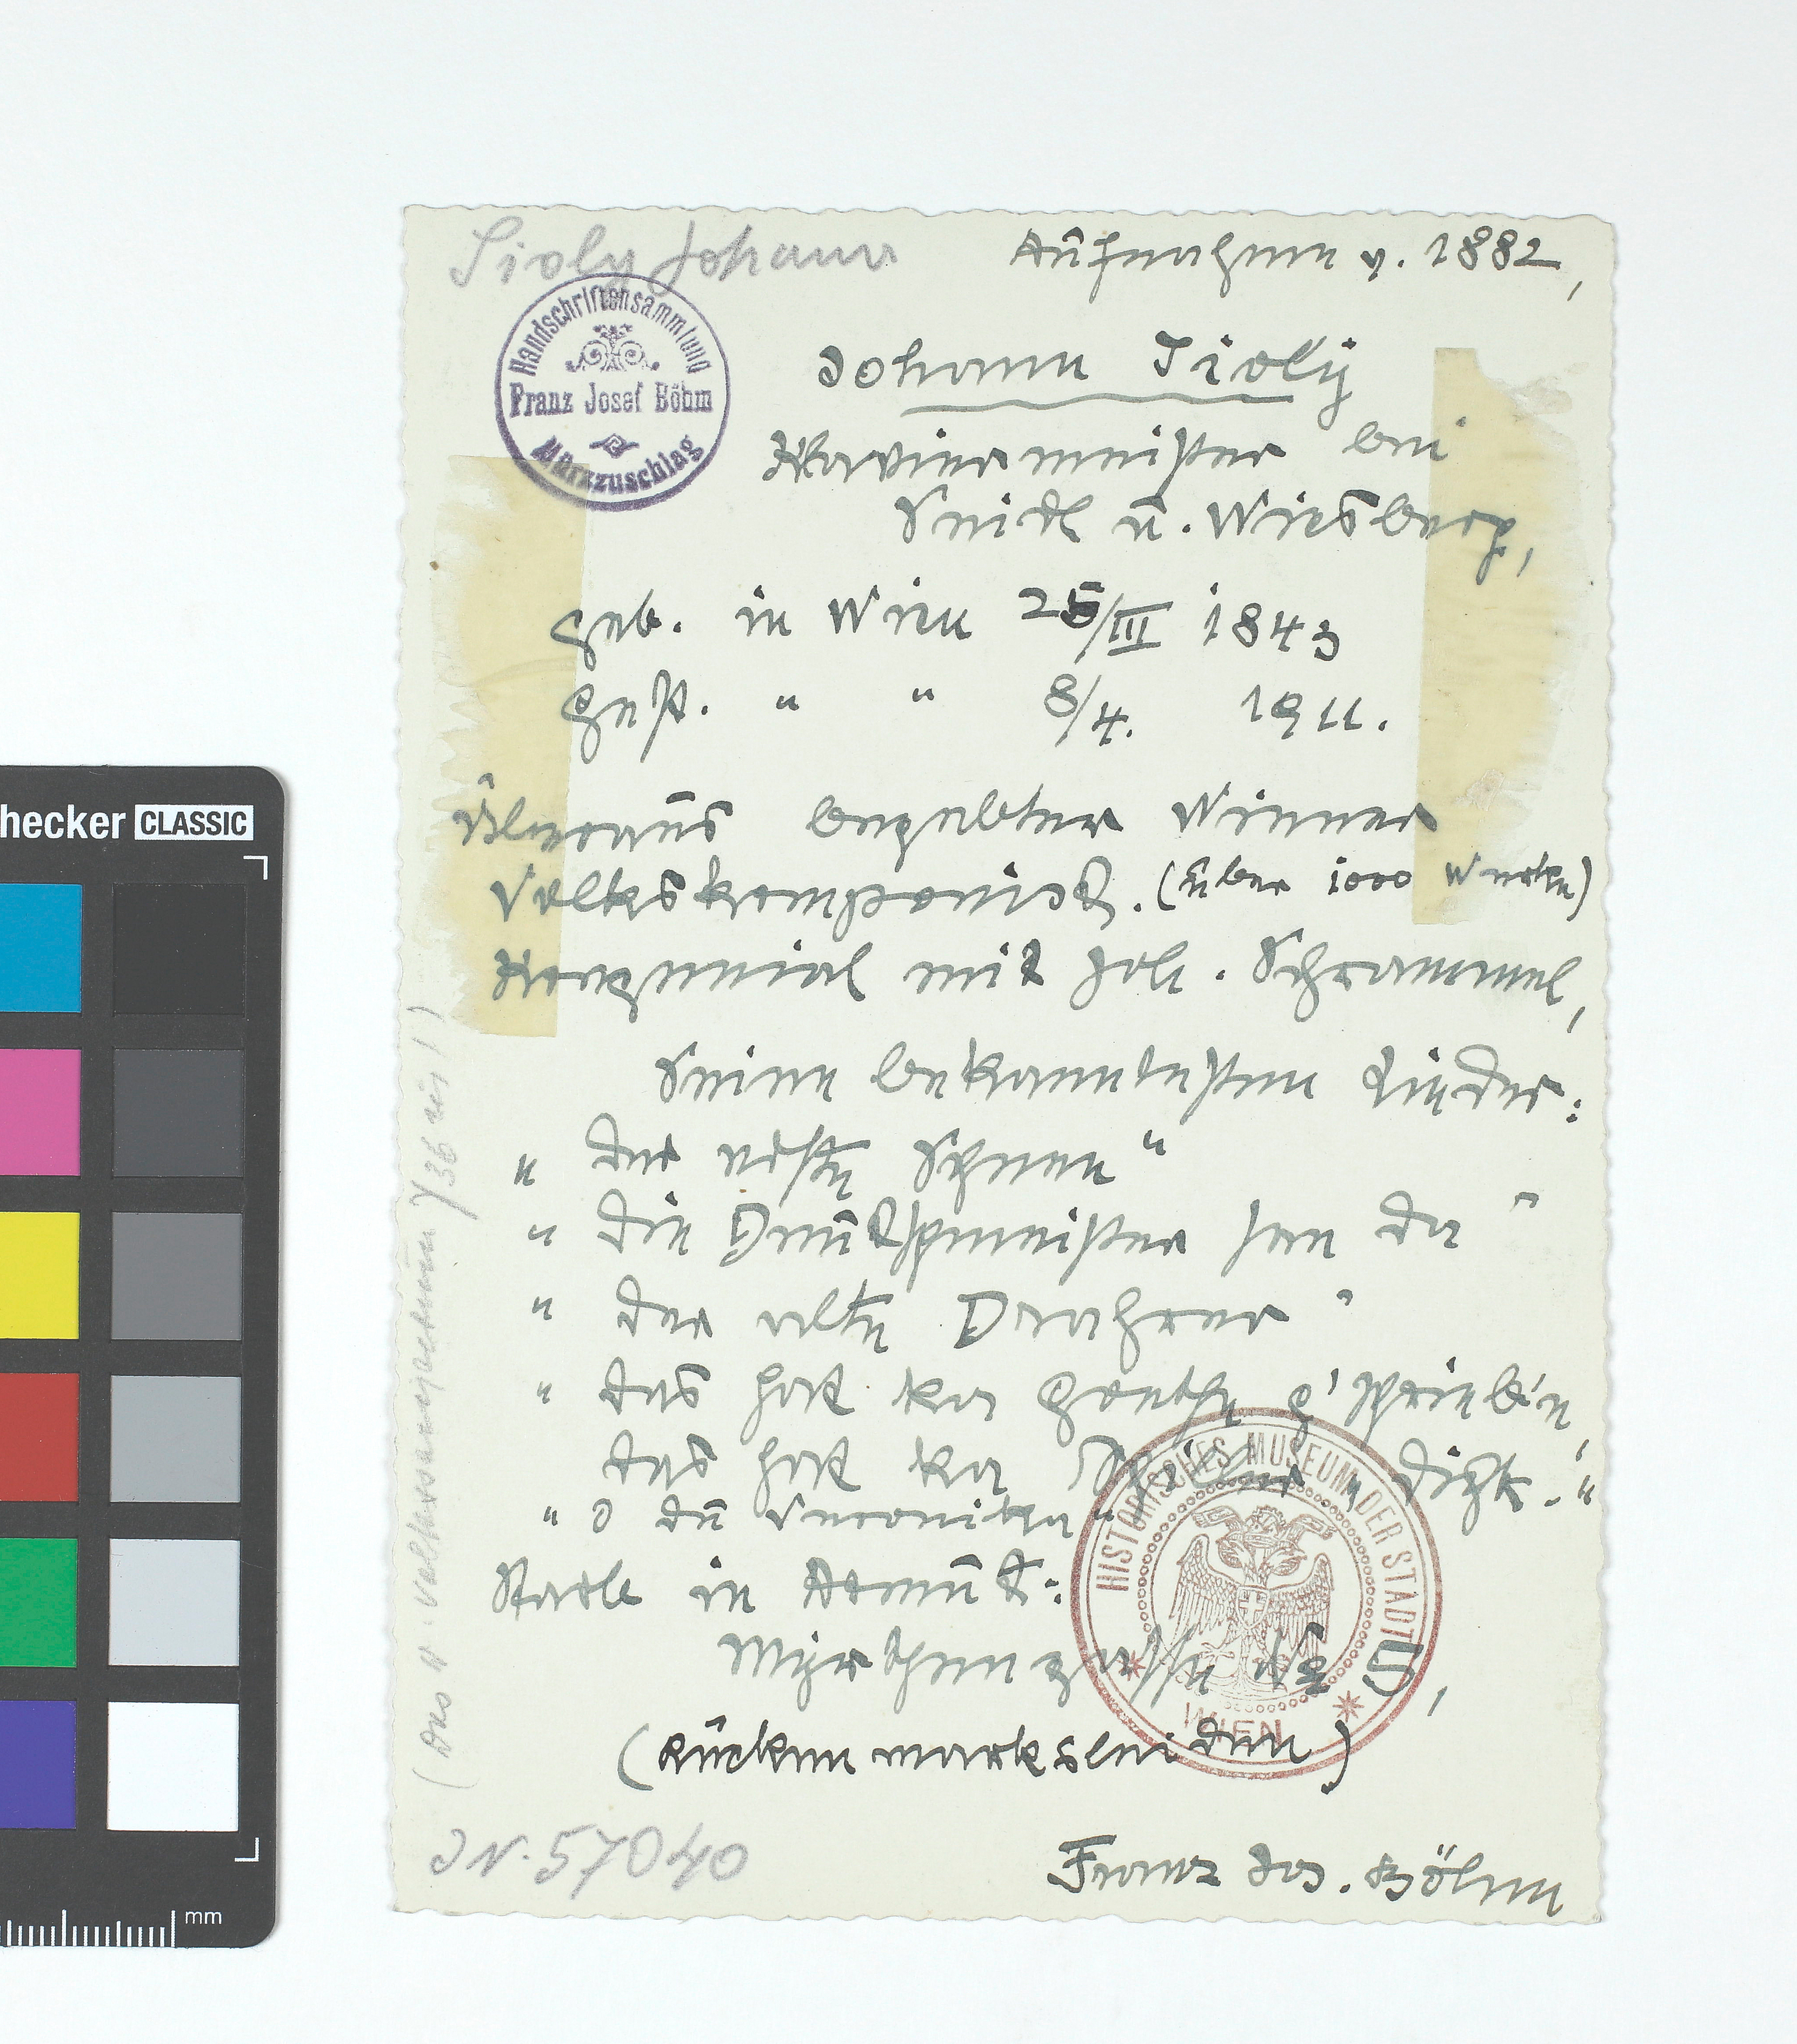 Sioly Johann
Aufnahme v. 1882,
Handschriftensammlung
Franz Josef Böhm
Mürzzuschlag
Johann Sioly
Klaviermeister bei
Seidl u. Wiesberg,
geb. in Wien 25/III 1843
gest. " " 8/4. 1911.
Überaus begabter Wiener
Volkskomponist. (über 1000 Werke)
Kongenial mit Joh. Schrammel,
Seine bekanntesten Lieder:
"Der erste Schnee"
"Die Deutschmeister san da"
"Der alte Drahrer"
"Das hat ka Goethe g'schrieb'n,
das hat ka Schiller dicht."
"O du Veronika"
Starb in Armut:
Myrthengasse No 5,
(Rückenmarksleiden)
Franz Jos. Böhm
IN. 57040
HISTORISCHES MUSEUM DER STADT
WIEN
hecker CLASSIC
mm